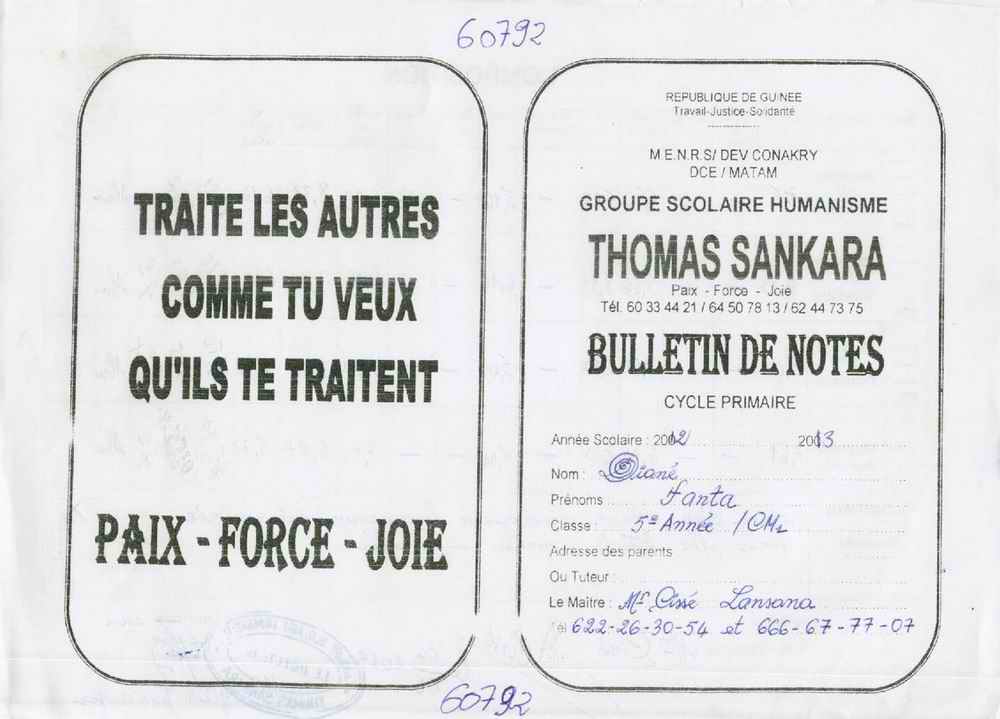 60792
TRAITE LES AUTRES
COMME TU VEUX
QU'ILS TE TRAITENT
PAIX - FORCE - JOIE
REPUBLIQUE DE GUINEE
Travail-Justice-Solidarité
M.E.N.R.S/ DEV CONAKRY
DCE / MATAM
GROUPE SCOLAIRE HUMANISME
THOMAS SANKARA
Paix - Force - Joie
Tél. 60 33 44 21 / 64 50 78 13 / 62 44 73 75
BULLETIN DE NOTES
CYCLE PRIMAIRE
Année Scolaire : 2012 2013
Nom : Diané
Prénoms Fanta
Classe : 5e Année / CM1
Adresse des parents
Ou Tuteur :
Le Maître : Mr Cissé Lansana
Tél 622-26-30-54 et 666-67-77-07
60792